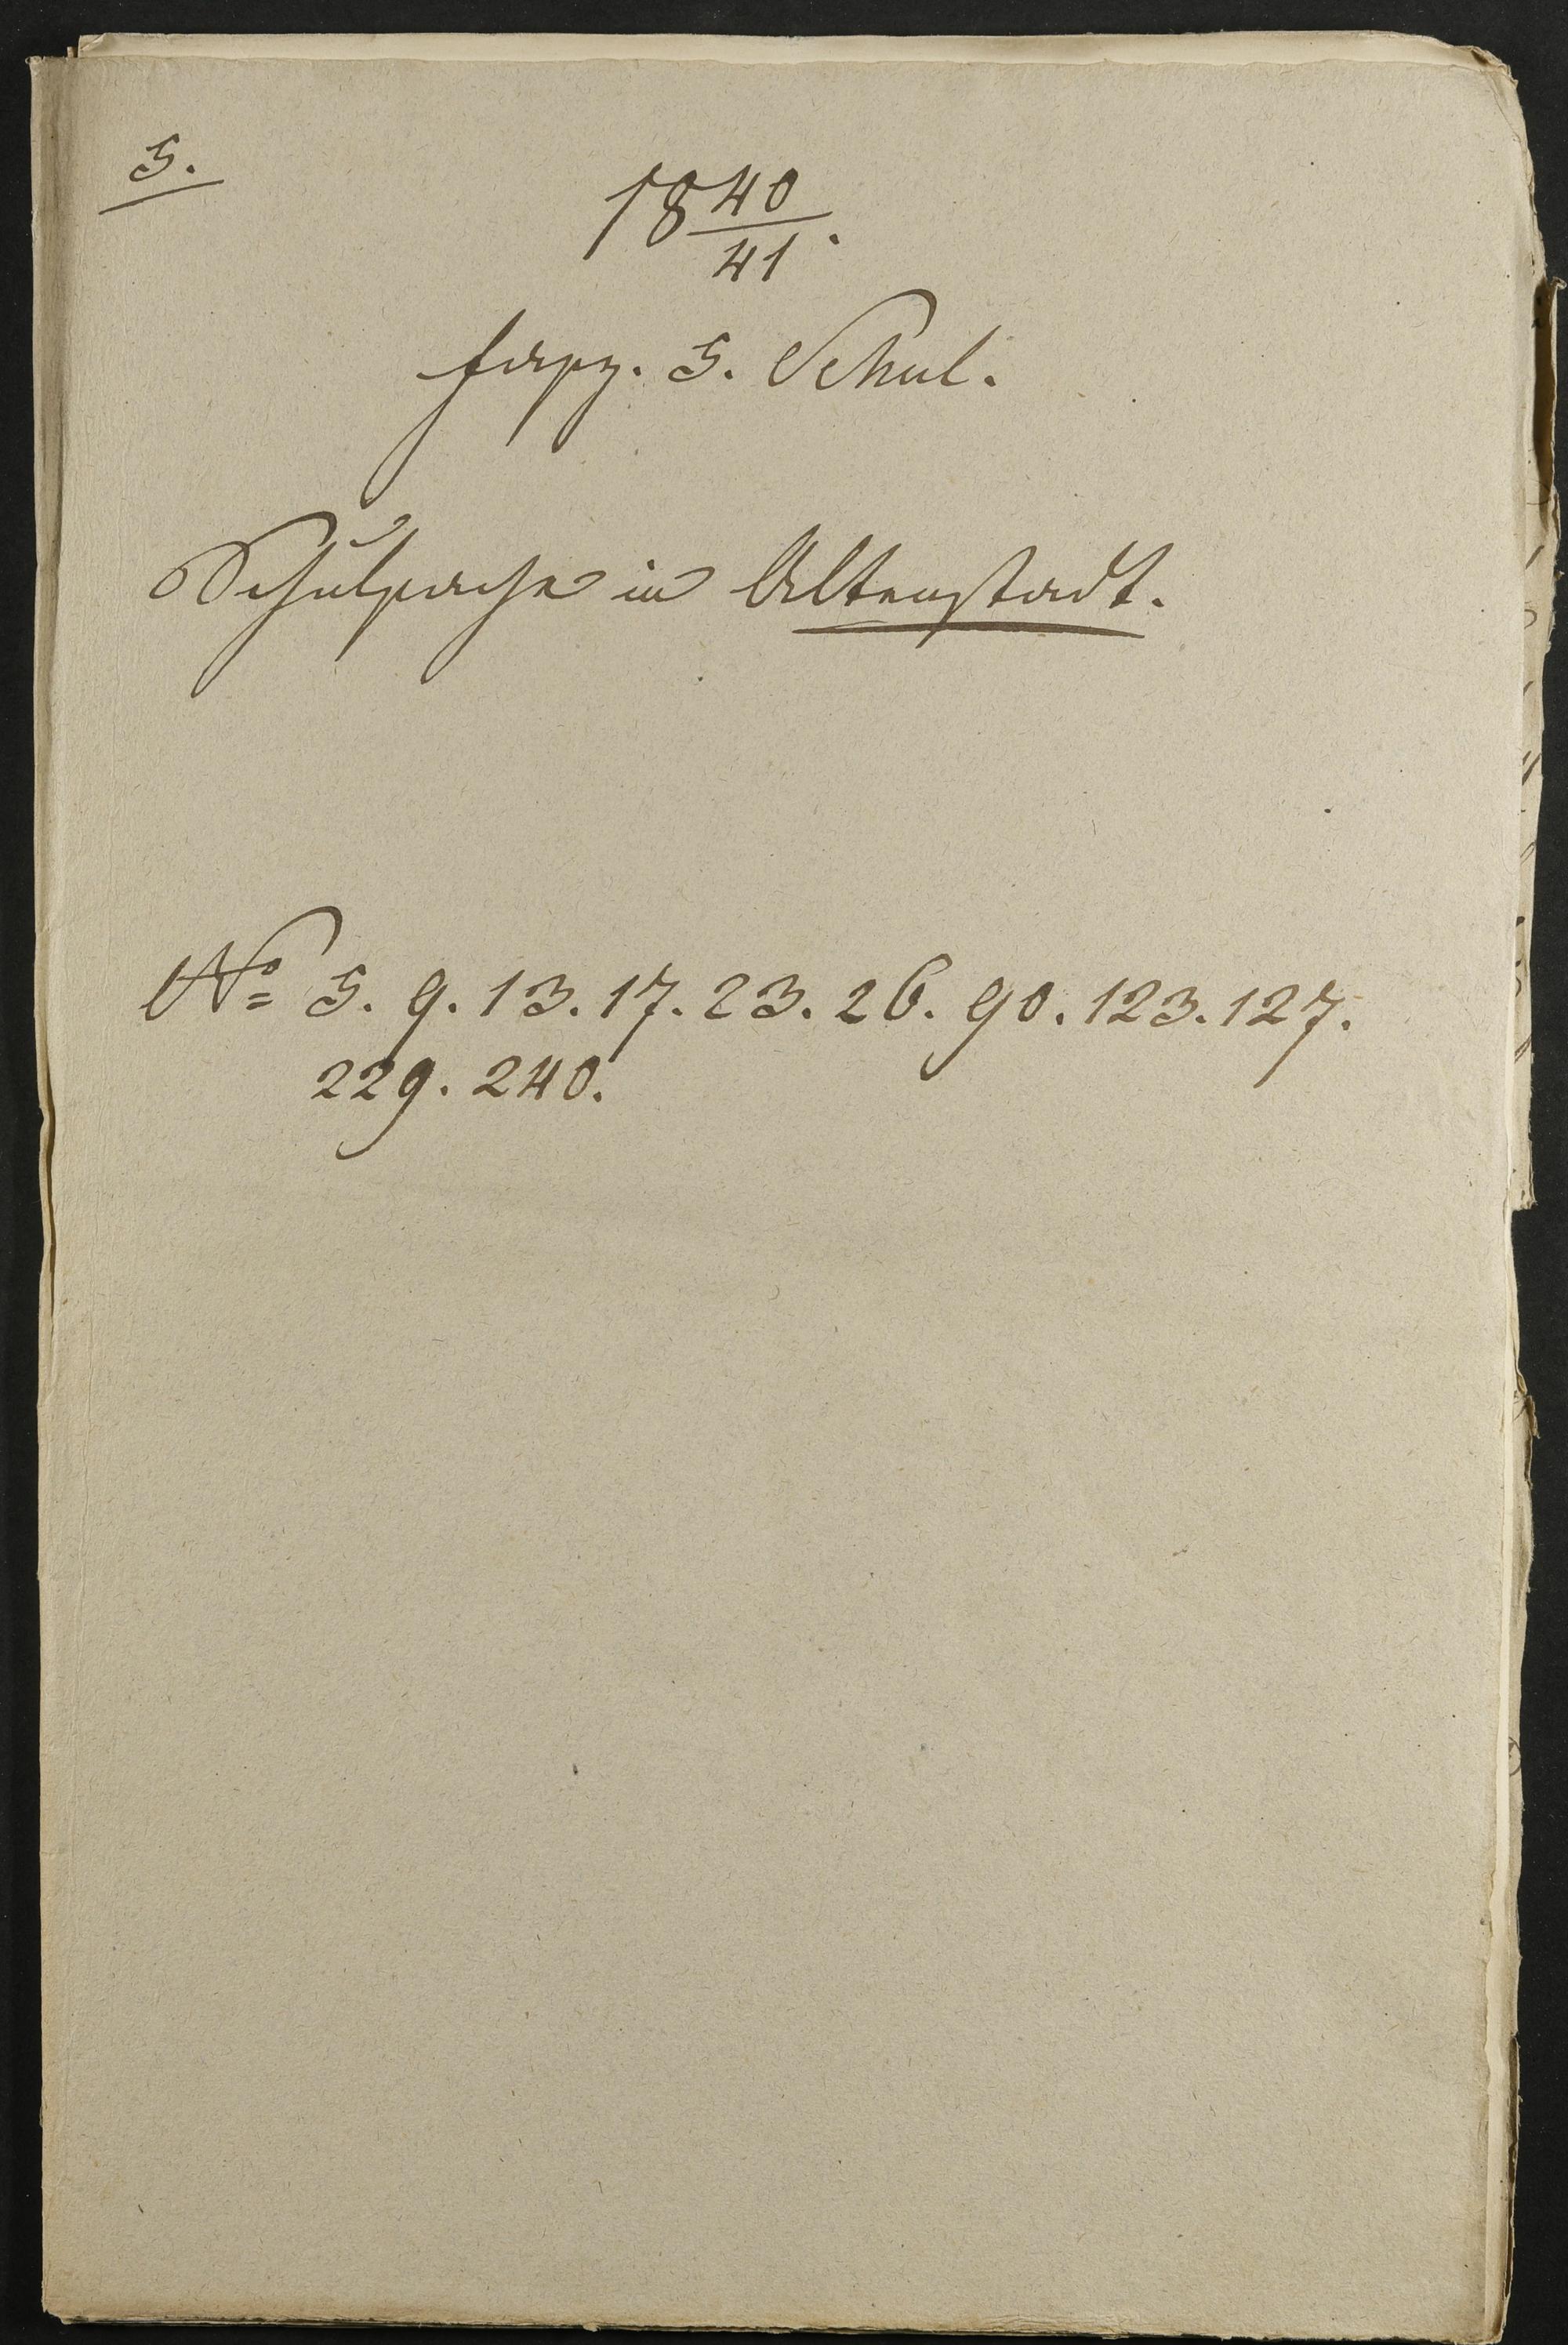 5.
18 40/41.
fasz. 5. Schul.
Schulsache in Altenstadt.
No 5. 9. 13. 17. 23. 26. 90. 123. 127.
229. 240.